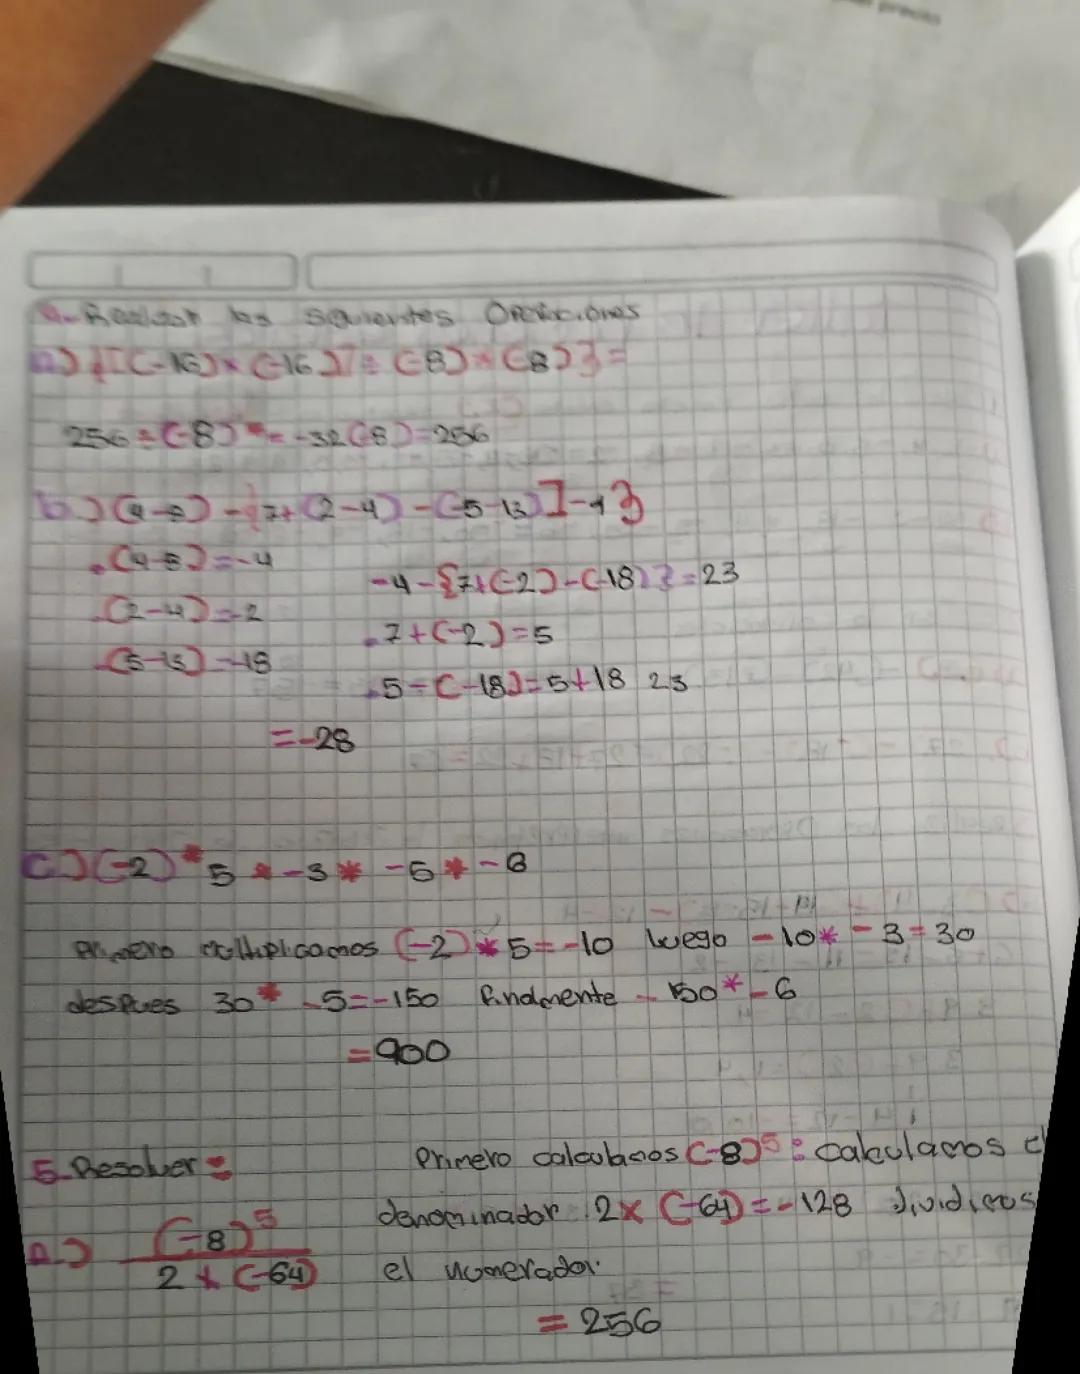 4- Realizar las siguientes Operaciones
a) {[(-16) × (-16)] ÷ (-8) * (-8)} =
256 ÷ (-8) = -32 (-8) = 256
7 + (2-4) - (-5-13)] -1}
(2-4) = -2
-4 - {7 + (-2) - (-18)} = 23
. 7 + (-2) = 5
. 5 - (-18) = 5 + 18 23
= -28
c) (-2) * 5 * -3 * -5 * -6
Primero multiplicamos (-2) * 5 = -10 luego -10 * -3 = 30
despues 30 * -5 = -150 finalmente - 150 * -6
= 900
5- Resolver = Primero calculamos (-8)⁵ : calculamos
denominador 2 × (-64) = -128 dividimos
a) (-8)⁵ / 2 × (-64) el numerador.
= 256